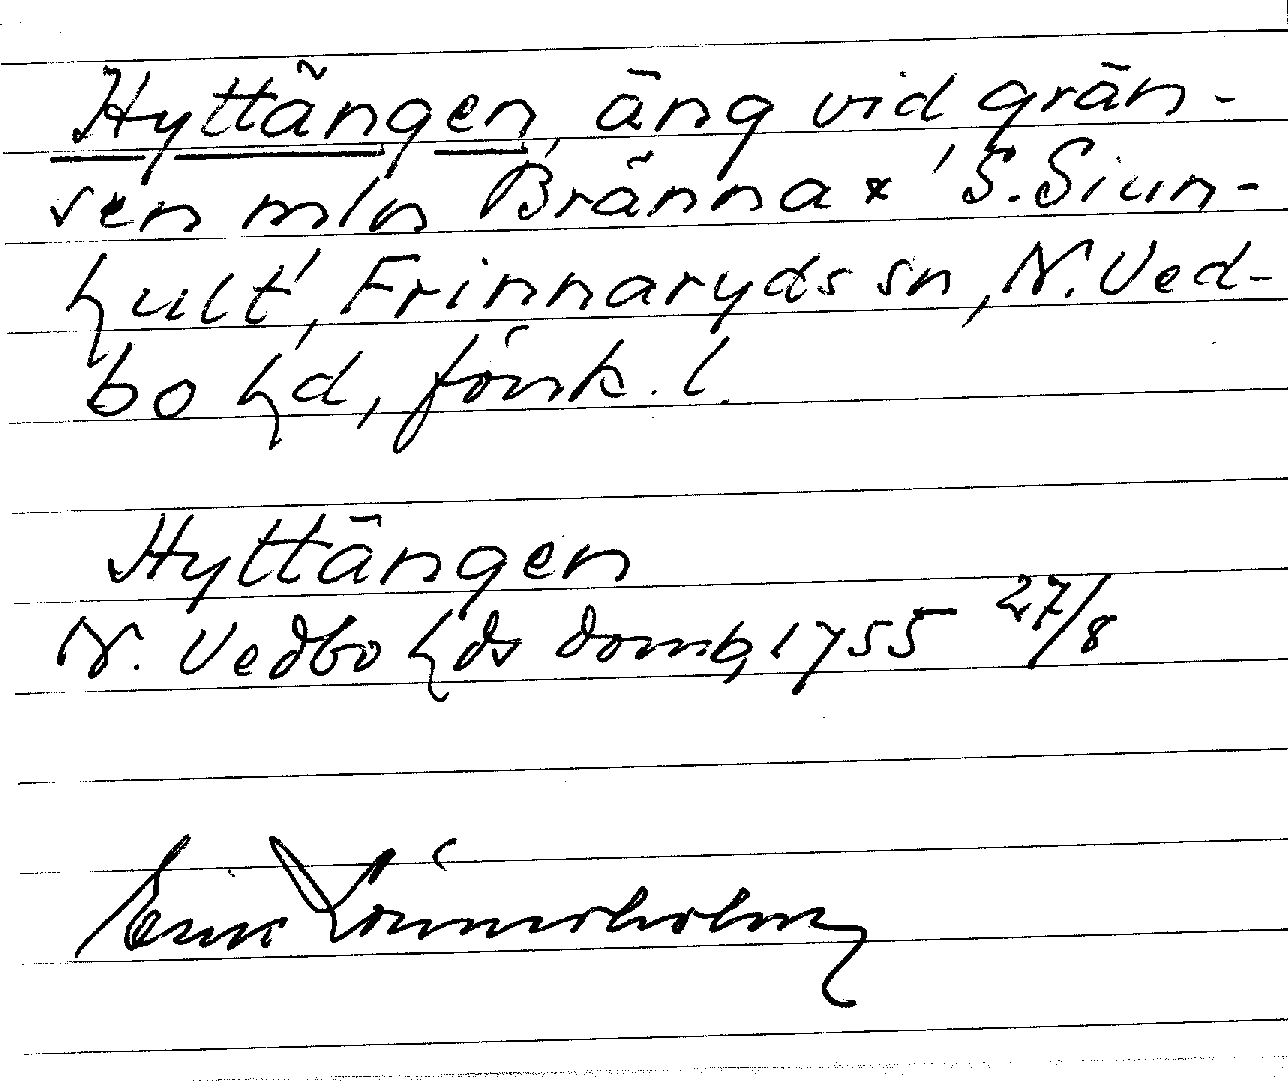 Hyttängen, äng vid grän-
sen mln Bränna & 'S. Siun-
hult', Frinnaryds sn, N. Ved-
bo hd, Jönk. l.
Hyttängen
N. Vedbo hds domb, 1755 27/8
Erik Lönnerholm